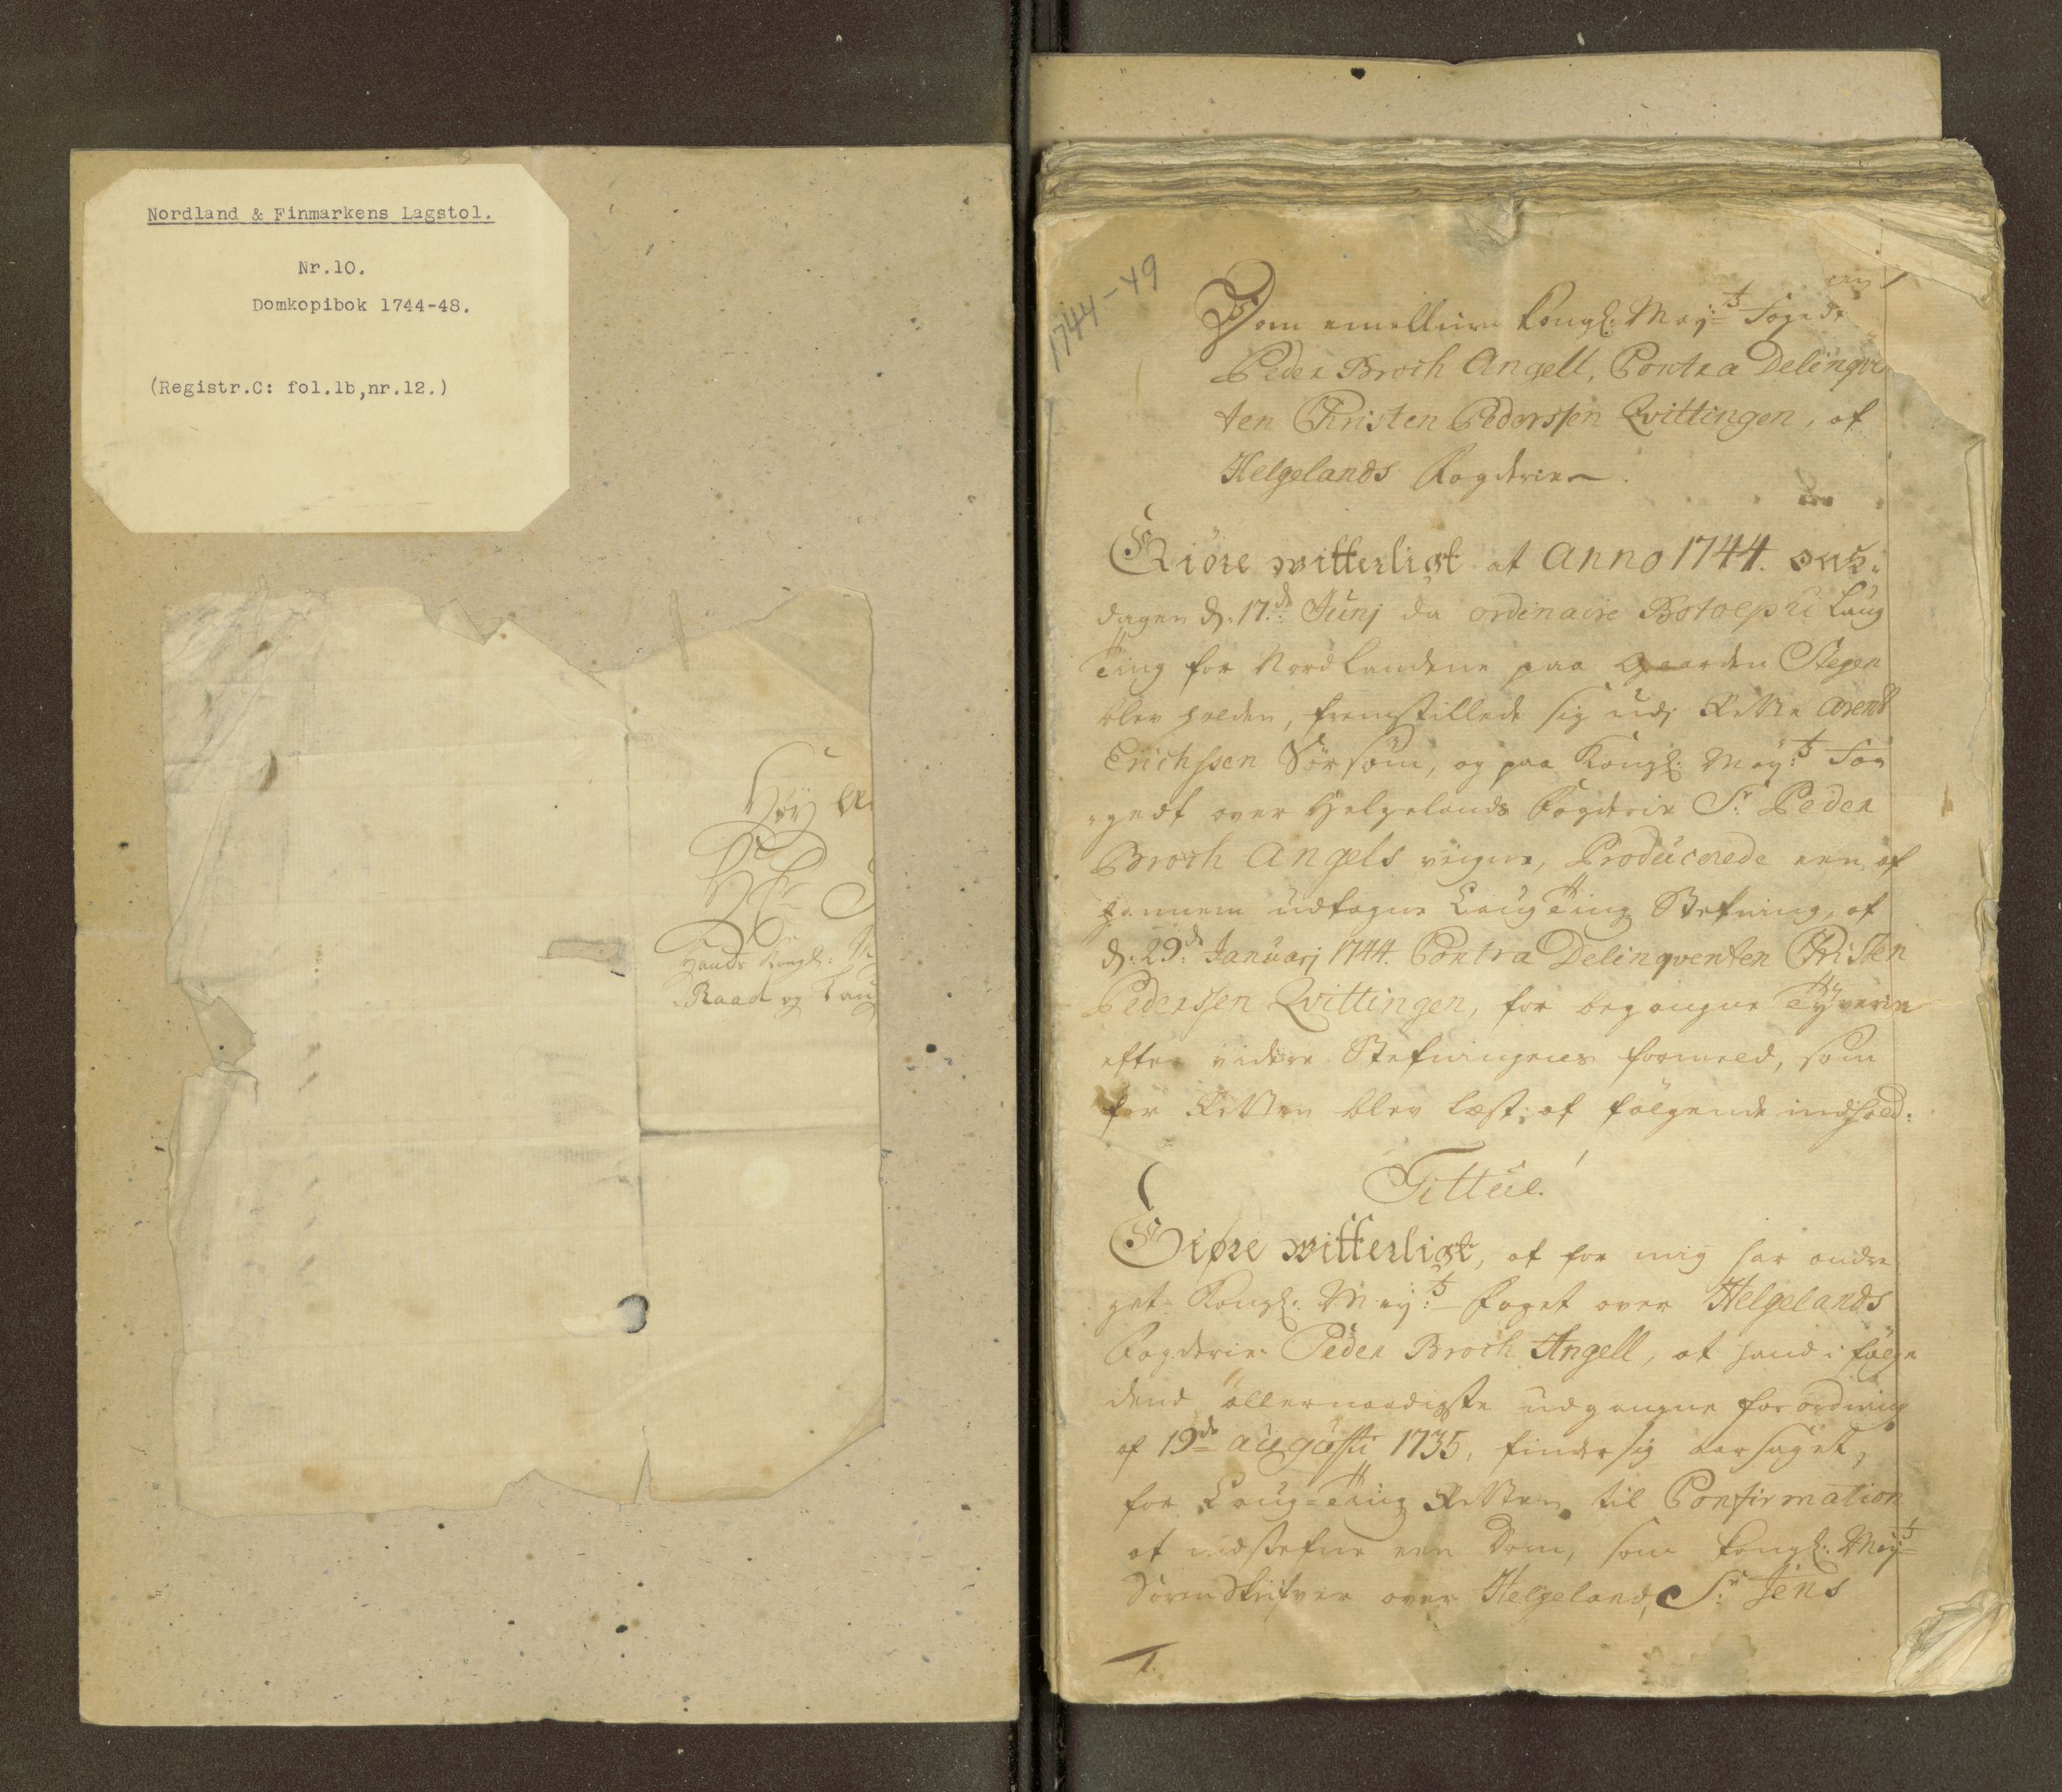 Nordland & Finmarkens Lagstol.
Nr.10.
Domkopibok 1744-48.
(Registr.C: fol.1b,nr.12.)
Høy
Hr
Hands Kongl:
Raad og Lau
1744-49
Dom emellum Kongl: May:ts Fogedt
Peder Broch Angell, Contra Delinqve
ten Christen Pederssen Qvittingen, af
Helgelands Fogderie.
Giøre witterligt at Anno 1744. ons-
dagen d. 17.de Junj da ordinaire Botolphi Laug
Ting for Nordlandene paa Gaarden Stegen
blev holden, fremstillede sig udj Retten Arent
Erichssen Sørsom, og paa Kongl: May:ts Fo
gedt over Helgelands Fogderie Sr. Peder
Broch Angels vegne, Producerede een af
hannem udtagne Laug Ting Stefning, af
d. 29.de Januarj 1744. Contra Delinqventen Christen
Pederssen Qvittingen, for begangne Tyverie
efter videre Stefningens formeld, som
for Retten blev læst; af følgende indhold:
Tittul!
Giøre witterligt, at for mig har andra
get Kongl: May:ts Foget over Helgelands
Fogderie Peder Broch Angell, at hand i følge
dend allernaadigste udgangne forordning
af 19de Augusti 1735, finder sig aarsaget,
for Laug-Ting Retten til Confirmation
at indstefne een Dom, som Kongl: May:ts
Sorenskrifver over Helgeland, Sr. Jens
1.